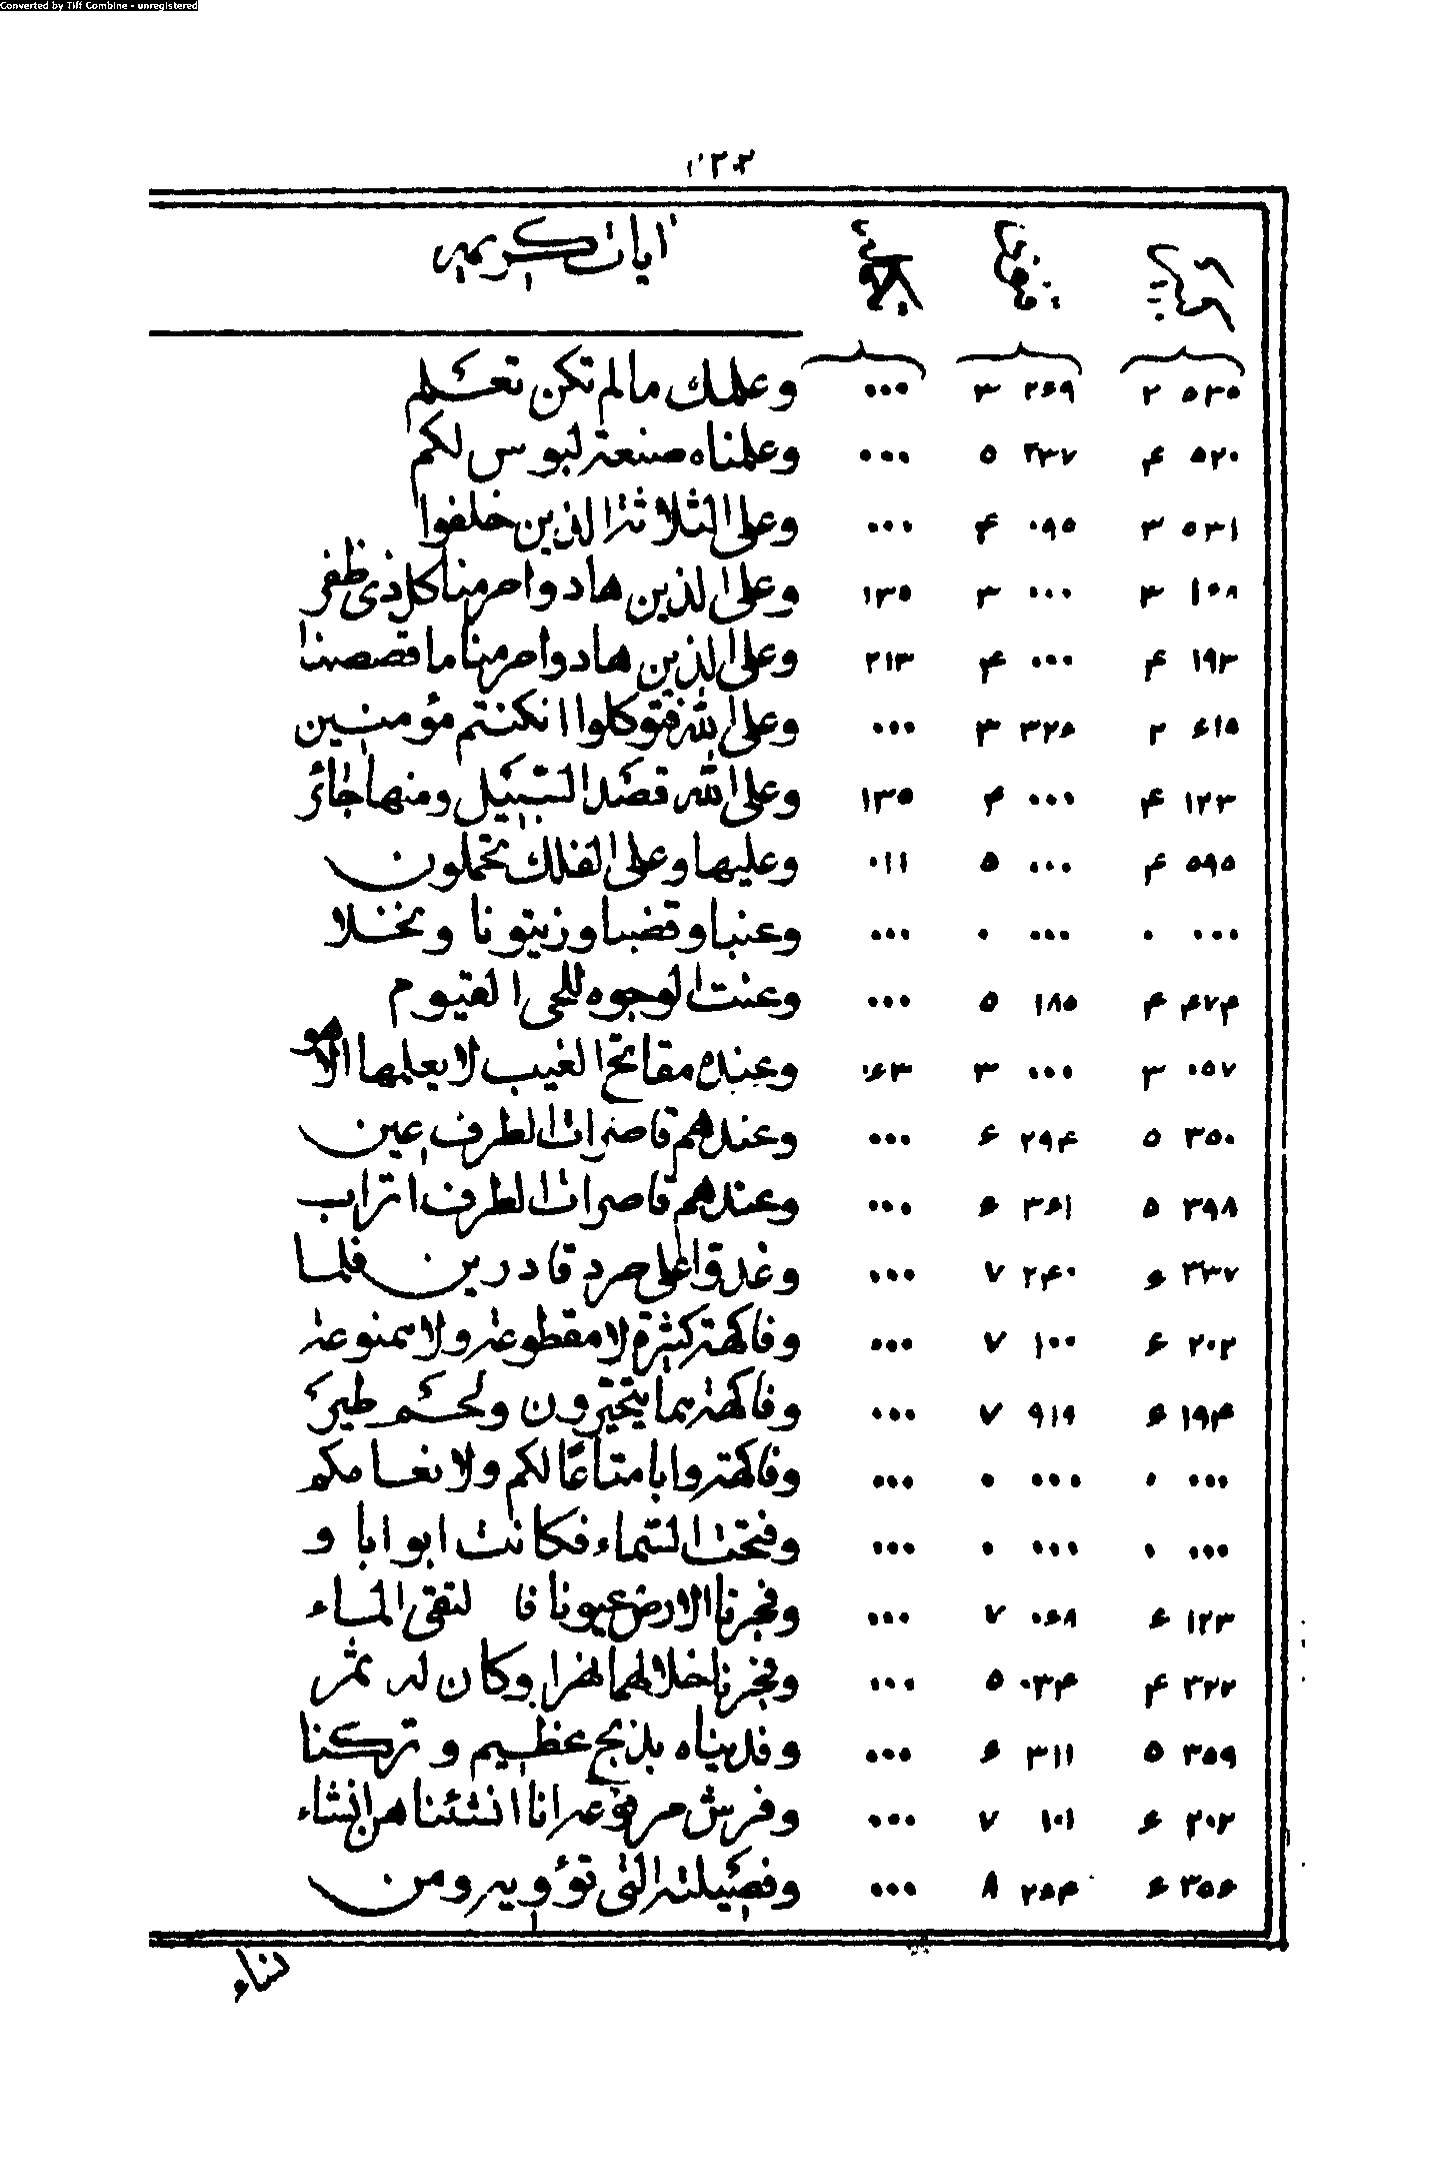 Converted by Tiff Combine - unregistered
ايات كريمه
۵۳۰ ۲ ۲۶۹ ۳ ۰۰۰ وعلمك مالم تكن تعلم
۵۲۰ ۴ ۳۳۷ ۵ ۰۰۰ وعلمناه صنعة لبوس لكم
۵۳۱ ۳ ۰۹۵ ۴ ۰۰۰ وعلى الثلاثة الذين خلفوا
۱۵۸ ۳ ۰۰۰ ۳ ۱۳۵ وعلى الذين هادوا حرمنا كل ذى ظفر
۱۹۳ ۴ ۰۰۰ ۴ ۲۱۳ وعلى الذين هادوا حرمنا ما قصصنا
۶۱۵ ۲ ۳۲۵ ۳ ۰۰۰ وعلى الله فتوكلوا ان كنتم مؤمنين
۱۲۳ ۴ ۰۰۰ ۴ ۱۳۵ وعلى الله قصد السبيل ومنها جائر
۵۹۵ ۴ ۰۰۰ ۵ ۰۱۱ وعليها وعلى الفلك تحملون
۰۰۰ ۰ ۰۰۰ ۰ ۰۰۰ وعنبا وقضبا وزيتونا ونخلا
۴۷۴ ۴ ۱۸۵ ۵ ۰۰۰ وعنت الوجوه للحى القيوم
۰۵۷ ۳ ۰۰۰ ۳ ۰۶۳ وعنده مفاتح الغيب لا يعلمها الا هو
۳۵۰ ۵ ۲۹۴ ۶ ۰۰۰ وعندهم قاصرات الطرف عين
۳۹۸ ۵ ۳۶۱ ۶ ۰۰۰ وعندهم قاصرات الطرف اتراب
۳۳۷ ۶ ۲۴۰ ۷ ۰۰۰ وغدوا على حرد قادرين فلما
۲۰۲ ۶ ۱۰۰ ۷ ۰۰۰ وفاكهة كثيرة لا مقطوعة ولا ممنوعة
۱۹۴ ۶ ۹۱۹ ۷ ۰۰۰ وفاكهة مما يتخيرون ولحم طير
۰۰۰ ۰ ۰۰۰ ۰ ۰۰۰ وفاكهة وابا متاعا لكم ولانعامكم
۰۰۰ ۰ ۰۰۰ ۰ ۰۰۰ وفتحت السماء فكانت ابوابا و
۱۲۳ ۶ ۰۶۸ ۷ ۰۰۰ وفجرنا الارض عيونا فالتقى الماء
۳۲۲ ۴ ۰۳۴ ۵ ۰۰۰ وفجرنا خلالهما نهرا وكان له ثمر
۳۵۹ ۵ ۳۱۱ ۶ ۰۰۰ وفديناه بذبح عظيم وتركنا
۲۰۲ ۶ ۱۰۱ ۷ ۰۰۰ وفرش مرفوعة انا انشئناهن انشاء
۳۵۶ ۶ ۲۵۴ ۸ ۰۰۰ وفصيلته التى تؤويه ومن